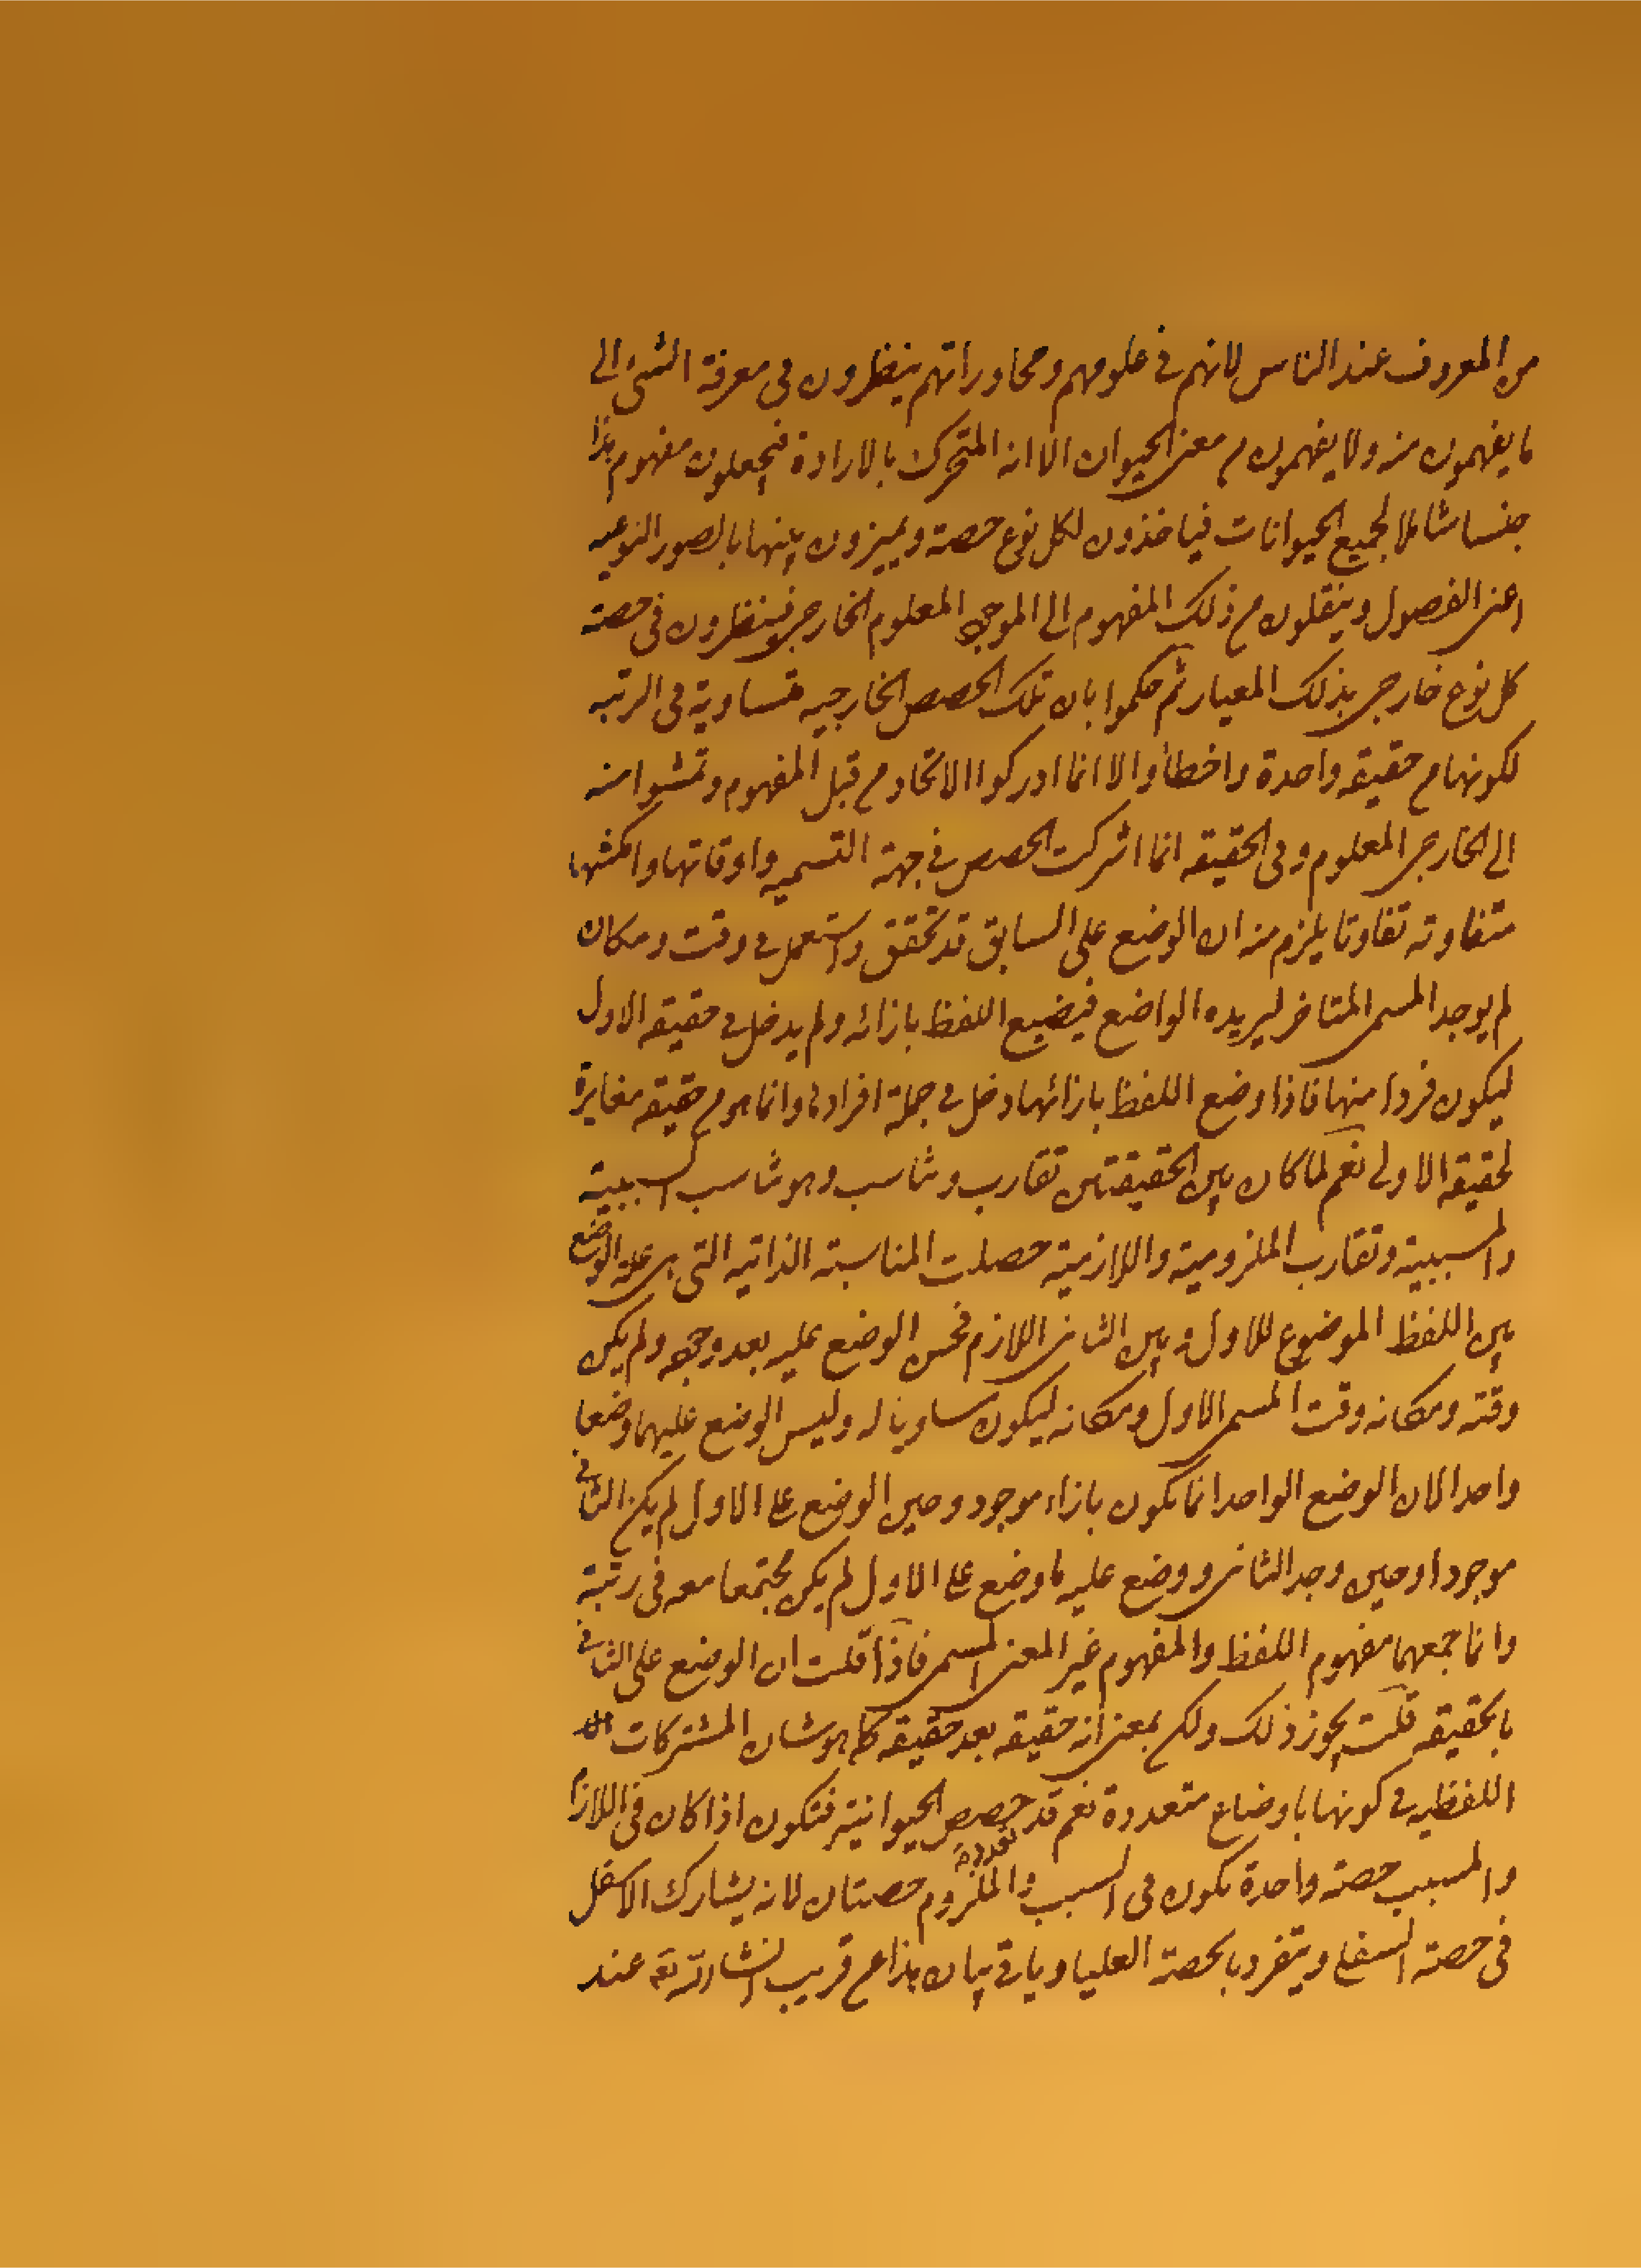 من المعروف عند الناس لانهم في علومهم ومحاوراتهم ينظرون في معرفة الشئ الى
ما يفهمون منه ولا يفهمون من معنى الحيوان الا انه المتحرك بالارادة فيجعلون مفهوم هذا
جنسا شاملا لجميع الحيوانات فياخذون لكل نوع حصة ويميزون بينها بالصور النوعيه
اعنى الفصول وينقلون من ذلك المفهوم الى الموجود المعلوم الخارجى فينظرون فى حصة
كل نوع خارجى بذلك المعيار ثم حكموا بان تلك الحصص الخارجيه متساوية فى الرتبه
لكونها من حقيقه واحدة واخطأوا لانا انما ادركوا الاتحاد من قبل المفهوم وتمشوا منه
الى الخارجى المعلوم وفى الحقيقه انما اشتركت الحصص في جهة التسميه واوقاتها وامكنتها
متفاوته تفاوتا يلزم منه ان الوضع على السابق قد تحقق واستعمل في وقت ومكان
لم يوجد المسمى المتاخر ليريده الواضع فيضع اللفظ بازائه ولم يدخل في حقيقه الاول
ليكون فردا منها فاذا وضع اللفظ بازائها دخل في جملة افرادها وانما هو من حقيقه مغايرة
لحقيقه الاولى نعم لما كان بين الحقيقتين تقارب وتناسب وهو تناسب السببية
والمسببية وتقارب الملزومية واللازمية حصلت المناسبة الذاتيه التى هى علة الوضع
بين اللفظ الموضوع للاول وبين الثانى اللازم فحسن الوضع عليه بعد وجوده ولم يكن
وقته ومكانه وقت المسمى الاول ومكانه ليكون مساويا له وليس الوضع عليهما وضعا
واحدا لان الوضع الواحد انما يكون بازاء موجود وحين الوضع على الاول لم يكن الثانى
موجودا وحين وجد الثانى ووضع عليه ما وضع على الاول لم يكن مجتمعا معه فى رتبة
وانما جمعهما مفهوم اللفظ والمفهوم غير المعنى المسمى فاذا قلت ان الوضع على الثانى
بالحقيقه قلت يجوز ذلك ولكن بمعنى انه حقيقه بعد حقيقه كما هو شان المشتركات
اللفظيه في كونها باوضاع متعددة نعم قد حصص الحيوانية فتكون اذا كان فى اللازم
والمسبب حصة واحدة يكون فى السبب والملزوم حصتان لانه يشارك الاسفل
فى حصة السفلى ويتفرد بالحصة العليا وياتى بيان هذا عن قريب انشاء الله تعالى عند